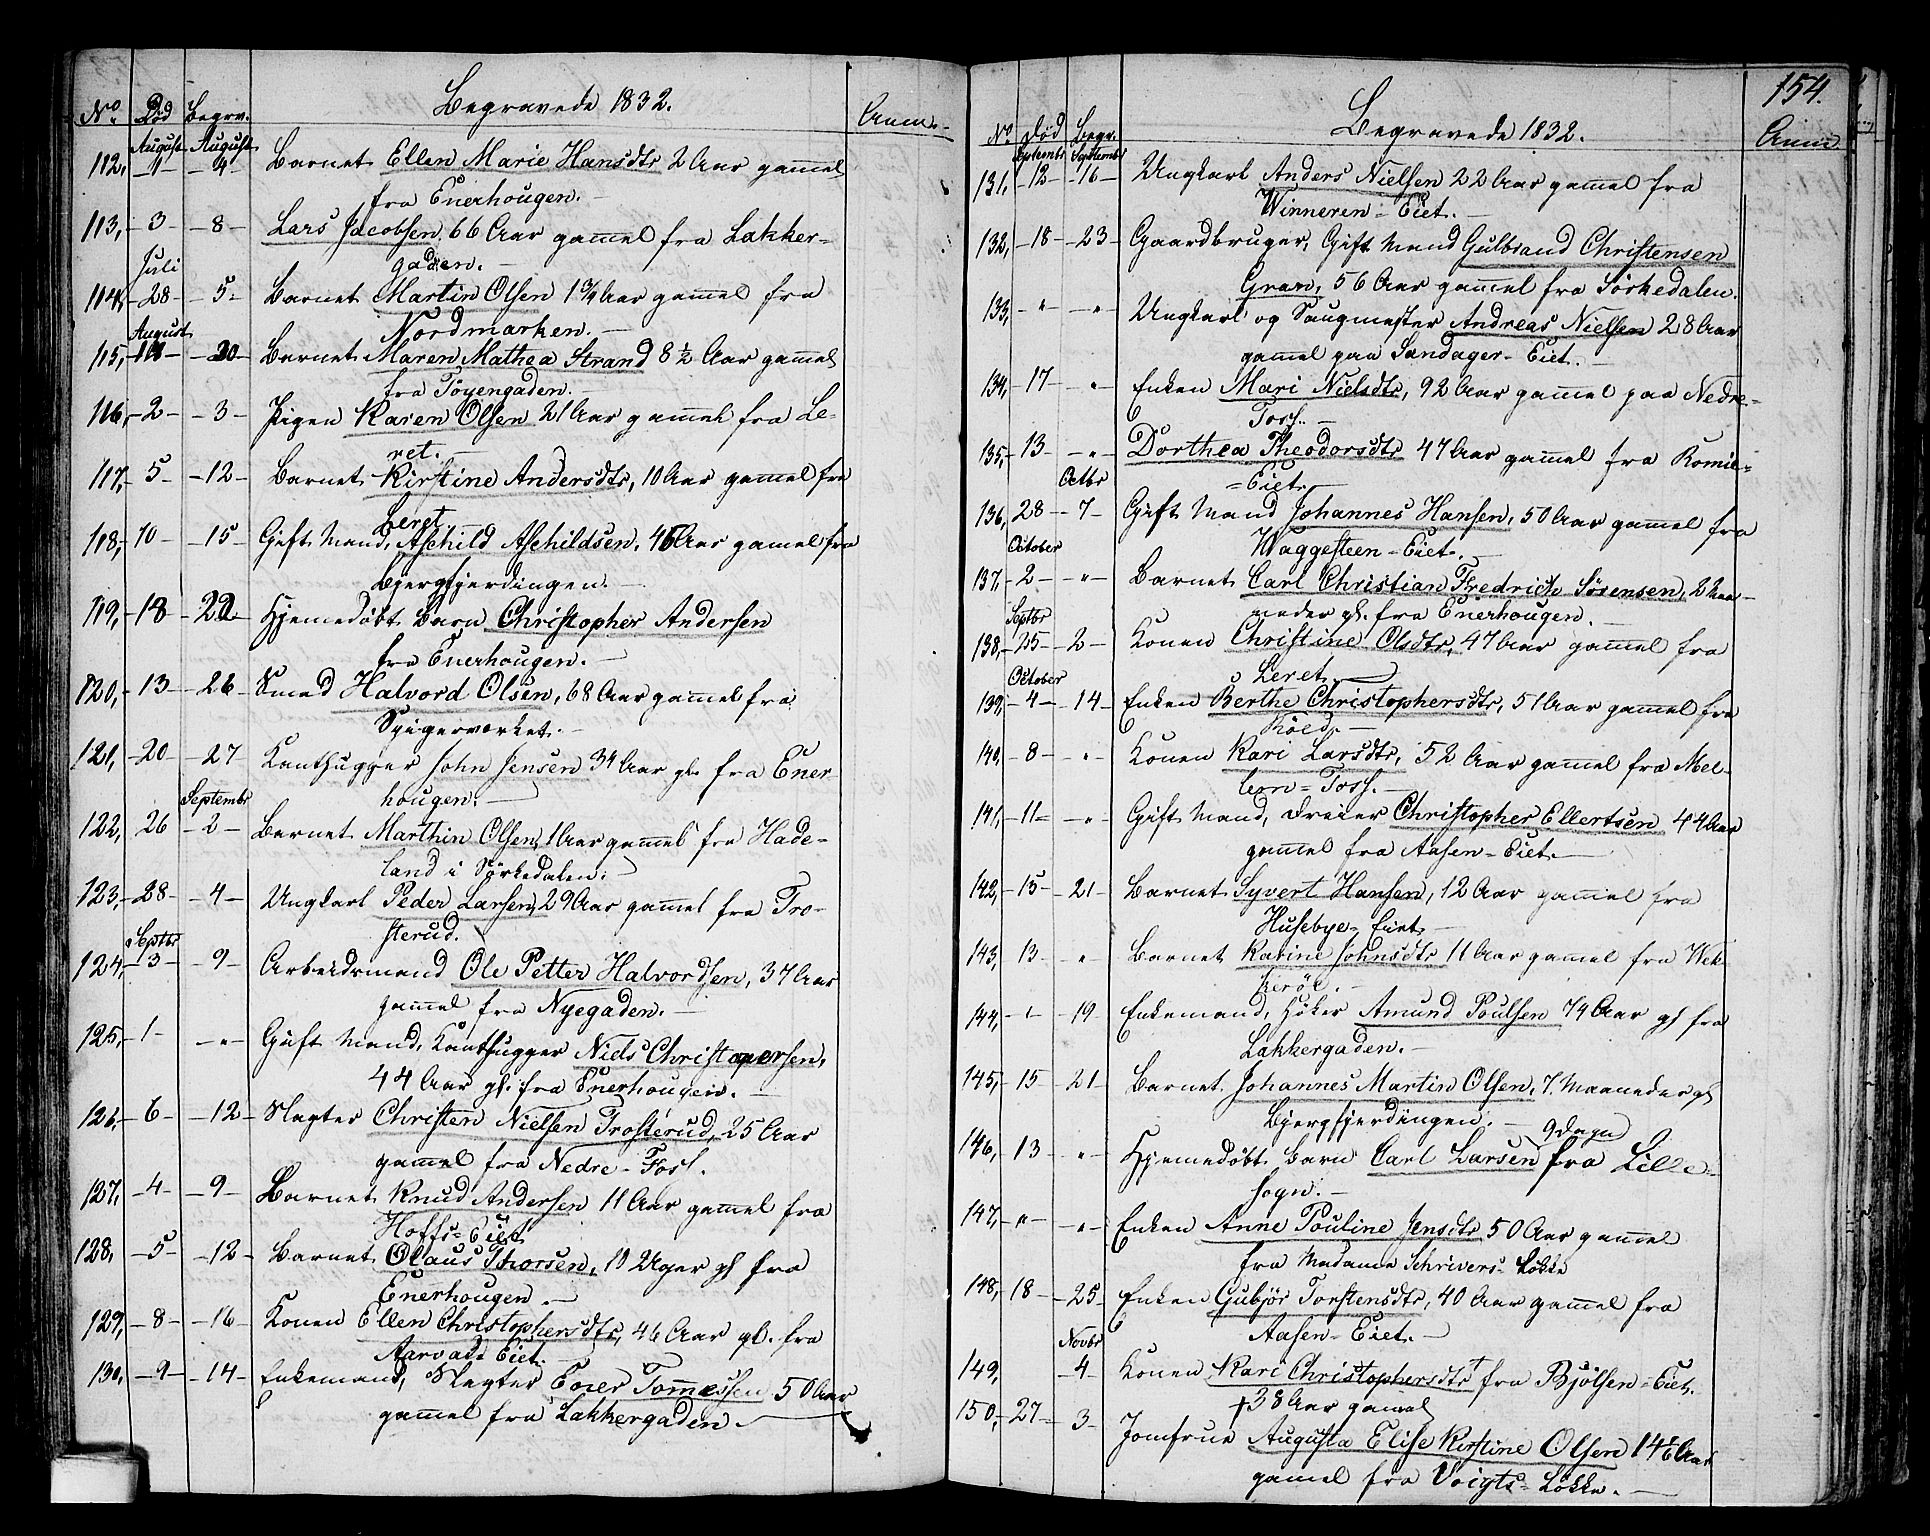 Begravede 1832.
No. Död Begrv. Anm.
August August
112, -1- -4- Barnet Ellen Marie Hansdtr 2 Aar gamel
fra Enerhougen.-
113, -3- -8- Lars Jacobsen, 66 Aar gamel fra Lakker-
gaden.-
Juli
114, -28- -5- Barnet Martin Olsen 1 3/4 Aar gamel fra
Nordmarken.-
August
115, -20- Barnet Maren Mathea Strand 8 1/2 Aar gamel
fra Töyengaden.
116, -2- -3- Pigen Karen Olsen 21 Aar gamel fra Le-
ret.-
117, -5- -12- Barnet Kirstine Andersdtr, 10 Aar gamel fra
Leret
118, -10- -15- Gift Mand, Aschild Aschildsen, 46 Aar gamel fra
Bjergfjerdingen.-
119, -18- -22- Hjemedøbt Barn Christopher Andersen
fra Enerhougen.-
120, -13- -26- Smed Halvord Olsen, 68 Aar gamel fra
Spigerværket.-
121, -20- -27 Kanthugger John Jensen 34 Aar gl. fra Ener-
hougen.-
Septembr
122, 26 -2- Barnet Marthin Olsen, 1 Aar gamel fra Hade-
land i Sørkedalen.-
123, -28- -4- Ungkarl Peder Larsen, 29 Aar gamel fra Tro-
sterud.
Septbr
124, -3- -9- Arbeidsmand Ole Petter Halvordsen, 37 Aar
gamel fra Nyegaden.-
125, -1- -"- Gift Mand, Kanthugger Niels Christopersen,
44 Aar gl. fra Enerhougen.-
126, -6- -12- Slagter Christen Nielsen Trosterud, 25 Aar
gamel fra Nedre-Foss.
127, -4- -9- Barnet Knud Andersen 11 Aar gamel fra
Hoffs-Eiet
128, -5- -12- Barnet Olaus Thorsen, 10 Uger gl fra
Enerhougen.-
129, -8- -16- Konen Ellen Christophersdtr, 46 Aar gl. fra
Eiet.
130, -9- -14- Enkemand, Slagter Tomessen 50 Aar
gamel fra Lakkergaden
154.
Begravede 1832.
No. Död Begr. Anm
Septembr Septembr
131, -12- -16- Ungkarl Anders Nielsen 22 Aar gamel fra
Winneren-Eiet.-
132, -18- -23- Gaardbruger, Gift Mand Gulbrand Christensen
Gran, 56 Aar gamel fra Sørkedalen.
133, -"- -"- Ungkarl og Saugmester Andreas Nielsen 28 Aar
gamel paa Sandager-Eiet.-
134, -17- -"- Enken Mari Nielsdtr, 92 Aar gamel paa Nedre-
Foss.-
135, -13- -"- Dorthea Theodorsdtr 47 Aar gamel fra Romie-
=Eiet.
Octbr
136, 28- -7- Gift Mand Johannes Hansen, 50 Aar gamel fra
Waggesteen-Eiet.-
October
137, -2- -"- Barnet Carl Christian Fredrich Sørensen, 2 Maa-
neder gl. fra Enerhougen.-
Septbr
138, -25- -2- Konen Christine Olsdtr, 47 Aar gamel fra
Leret.
October
139, -4- -14- Enken Berthe Christophersdtr, 51 Aar gamel fra
Röed.-
140, -8- -"- Konen Kari Larsdtr, 52 Aar gamel fra Mel-
lem=Foss.-
141, -11- -"- Gift Mand, Dreier Christopher Ellertsen 44 Aar
gamel fra Aasen-Eiet.-
142, -15- -21- Barnet Syvert Hansen, 12 Aar gamel fra
Husebye-Eiet
143, -13- -"- Barnet Karine Johnsdtr 11 Aar gamel fra Wek-
kerøe.-
144, -"- -19- Enkemand, Höker Amund Poulsen 74 Aar gl fra
Lakkergaden.-
145, -15 -21- Barnet Johannes Martin Olsen, 7 Maaneder gl
Bjergfjerdingen.-
9 Dage
146, -13- -"- Hjemedøbt Barn Carl Larsen fra Lille-
sogn.-
147, -"- -"- Enken Anne Pouline Jensdtr 50 Aar gamel
fra Madame Schrivers-Løkke
148, 18- -25- Enken Gubjør Torstensdtr, 40 Aar gamel fra
Aasen-Eiet.-
Novbr
149, -4- Konen Kari Christophersdtr † fra Bjölsen-Eiet.
† 38 Aar gamel
150, -27- -3- Jomfrue Augusta Elise Kirstine Olsen 14 1/2 Aar
gamel fra Voigts-Løkke.-